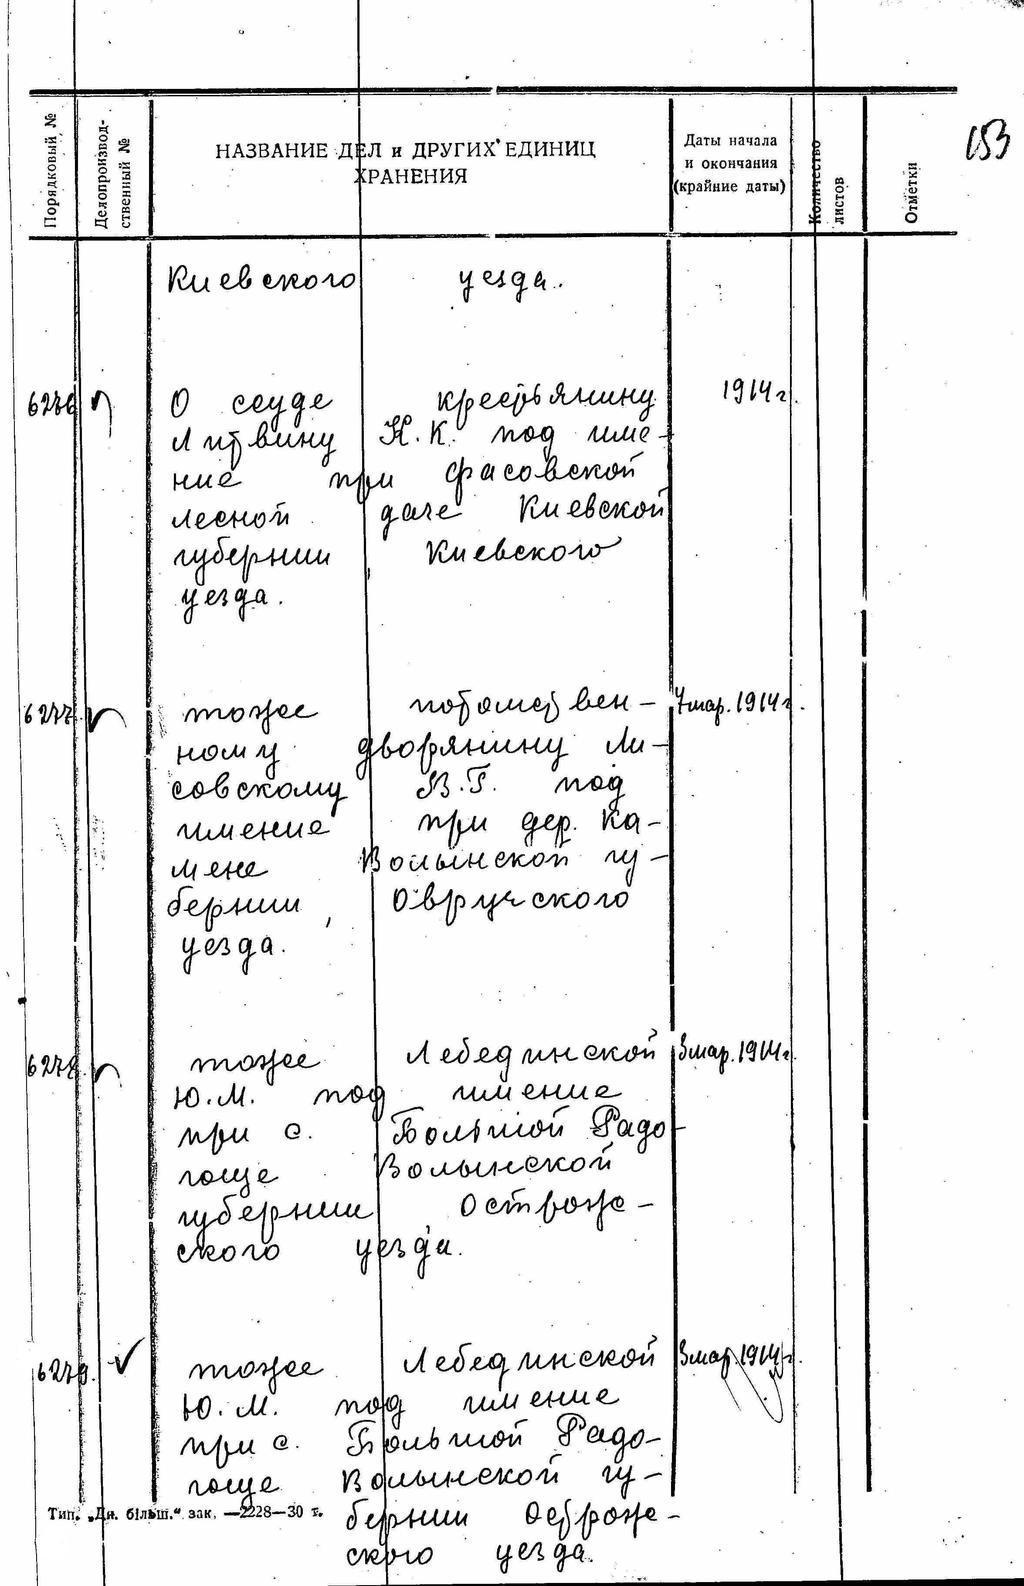 153
Порядковый №
Делопроизвод-
ственный №
НАЗВАНИЕ ДЕЛ и ДРУГИХ ЕДИНИЦ
ХРАНЕНИЯ
Даты начала
и окончания
(крайние даты)
Количество
листов
Отметки
Киевского уезда.
6276 О ссуде крестьянину 1914 г.
Литвину К.К. под име-
ние при Фасовской
лесной даче Киевской
губернии, Киевского
уезда.
6277. тоже потомствен- 7 мар. 1914 г.
ному дворянину Ли-
совскому В.Г. под
имение при дер. Ка-
мене Волынской гу-
бернии, Овручского
уезда.
6278. тоже Лебединской 3 мар. 1914 г.
Ю.М. под имение
при с. Большой Радо-
гоще Волынской
губернии Острож-
ского уезда.
6279. тоже Лебединской 3 мар. 1914 г.
Ю.М. под имение
при с. Большой Радо-
гоще Волынской гу-
бернии Острож-
ского уезда.
Тип. „Дн. більш." зак. —2228—30 т.